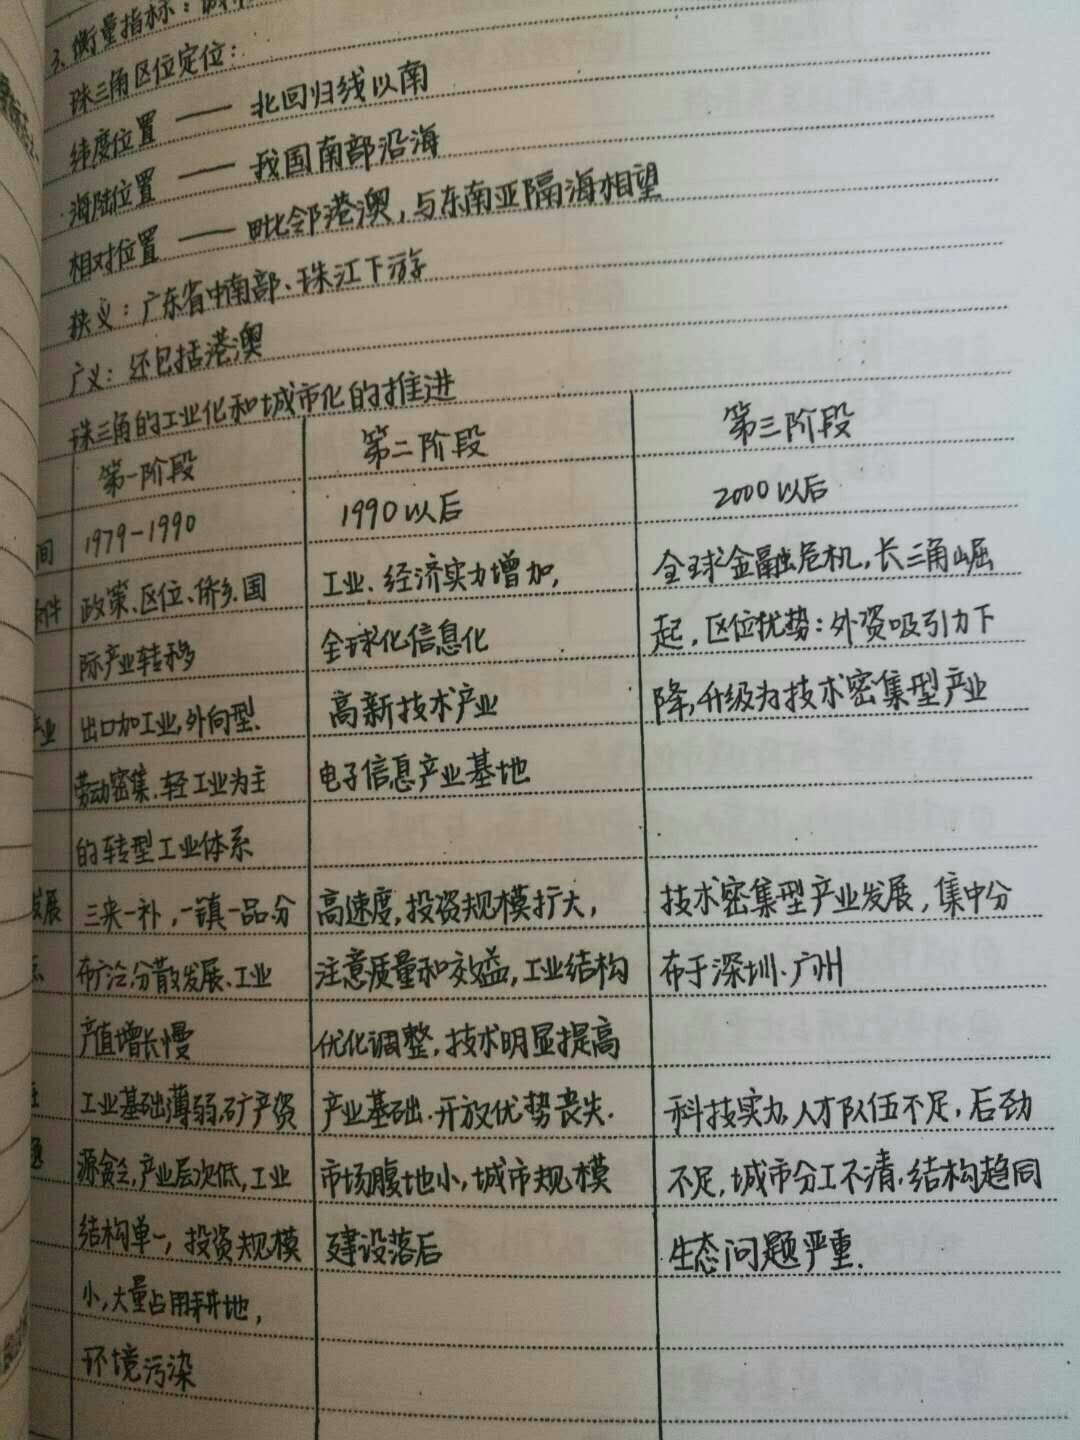 3、衡量指标：
珠三角区位定位：
纬度位置 —— 北回归线以南
海陆位置 —— 我国南部沿海
相对位置 —— 毗邻港澳，与东南亚隔海相望
狭义：广东省中南部、珠江下游
广义：还包括港澳
珠三角的工业化和城市化的推进
第一阶段 第二阶段 第三阶段
间 1979-1990 1990以后 2000以后
条件 政策、区位、侨乡、国 工业、经济实力增加， 全球金融危机，长三角崛
际产业转移 全球化信息化 起，区位优势：外资吸引力下
产业 出口加工业，外向型、 高新技术产业 降，升级为技术密集型产业
劳动密集、轻工业为主 电子信息产业基地
的转型工业体系
发展 三来一补，一镇一品分 高速度，投资规模扩大， 技术密集型产业发展，集中分
布广泛，分散发展、工业 注意质量和效益，工业结构 布于深圳、广州
产值增长慢 优化调整，技术明显提高
工业基础薄弱，矿产资 产业基础、开放优势丧失、 科技实力，人才队伍不足，后劲
题 源贫乏，产业层次低，工业 市场腹地小，城市规模 不足，城市分工不清，结构趋同
结构单一，投资规模 建设落后 生态问题严重.
小，大量占用耕地，
环境污染